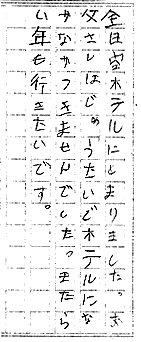 は空ホテルにとまりました。お
父さんはじめ ホテルにな
かなかつきませんでした。またら
い年も行きたいです。